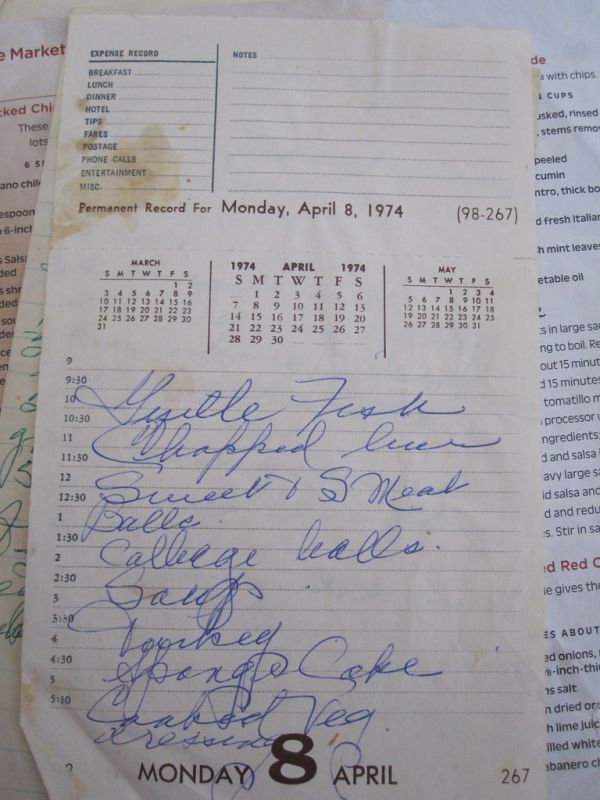 EXPENSE RECORD
BREAKFAST
LUNCH
DINNER
HOTEL
TIPS
FARES
POSTAGE
PHONE CALLS
ENTERTAINMENT
MISC.
NOTES
Permanent Record For Monday, April 8, 1974 (98-267)
MARCH
S M T W T F S
1 2
3 4 5 6 7 8 9
10 11 12 13 14 15 16
17 18 19 20 21 22 23
24 25 26 27 28 29 30
31
1974 APRIL 1974
S M T W T F S
1 2 3 4 5 6
7 8 9 10 11 12 13
14 15 16 17 18 19 20
21 22 23 24 25 26 27
28 29 30
MAY
S M T W T F S
1 2 3 4
5 6 7 8 9 10 11
12 13 14 15 16 17 18
19 20 21 22 23 24 25
26 27 28 29 30 31
9
9:30
10
10:30 Fish
11 Chopped liver
11:30
12 Sweet + S Meat
12:30
1 Balls
1:30 Cabbage balls.
2
2:30 Soup
3
3:30
4 Turkey
4:30 Sponge Cake
5
5:30 Cooked Veg
dressing
MONDAY 8 APRIL 267
e Market
cked Chi
These
lots
6 S
ano chile
espoon
6-inch
s Salsa
ded
s shr
ded
de
a with chips.
CUPS
usked, rinsed
, stems remo
peeled
cumin
ntro, thick bo
d fresh Italian
h mint leaves
etable oil
s in large sau
ng to boil. Re
out 15 minut
d 15 minutes
tomatillo m
processor u
ngredients;
d and salsa i
avy large sa
id salsa and
d and redu
s. Stir in sa
ed Red C
ie gives the
ES ABOUT
ed onions,
⅛-inch-thic
ns salt
n dried ore
h lime juice
illed white
abanero ch